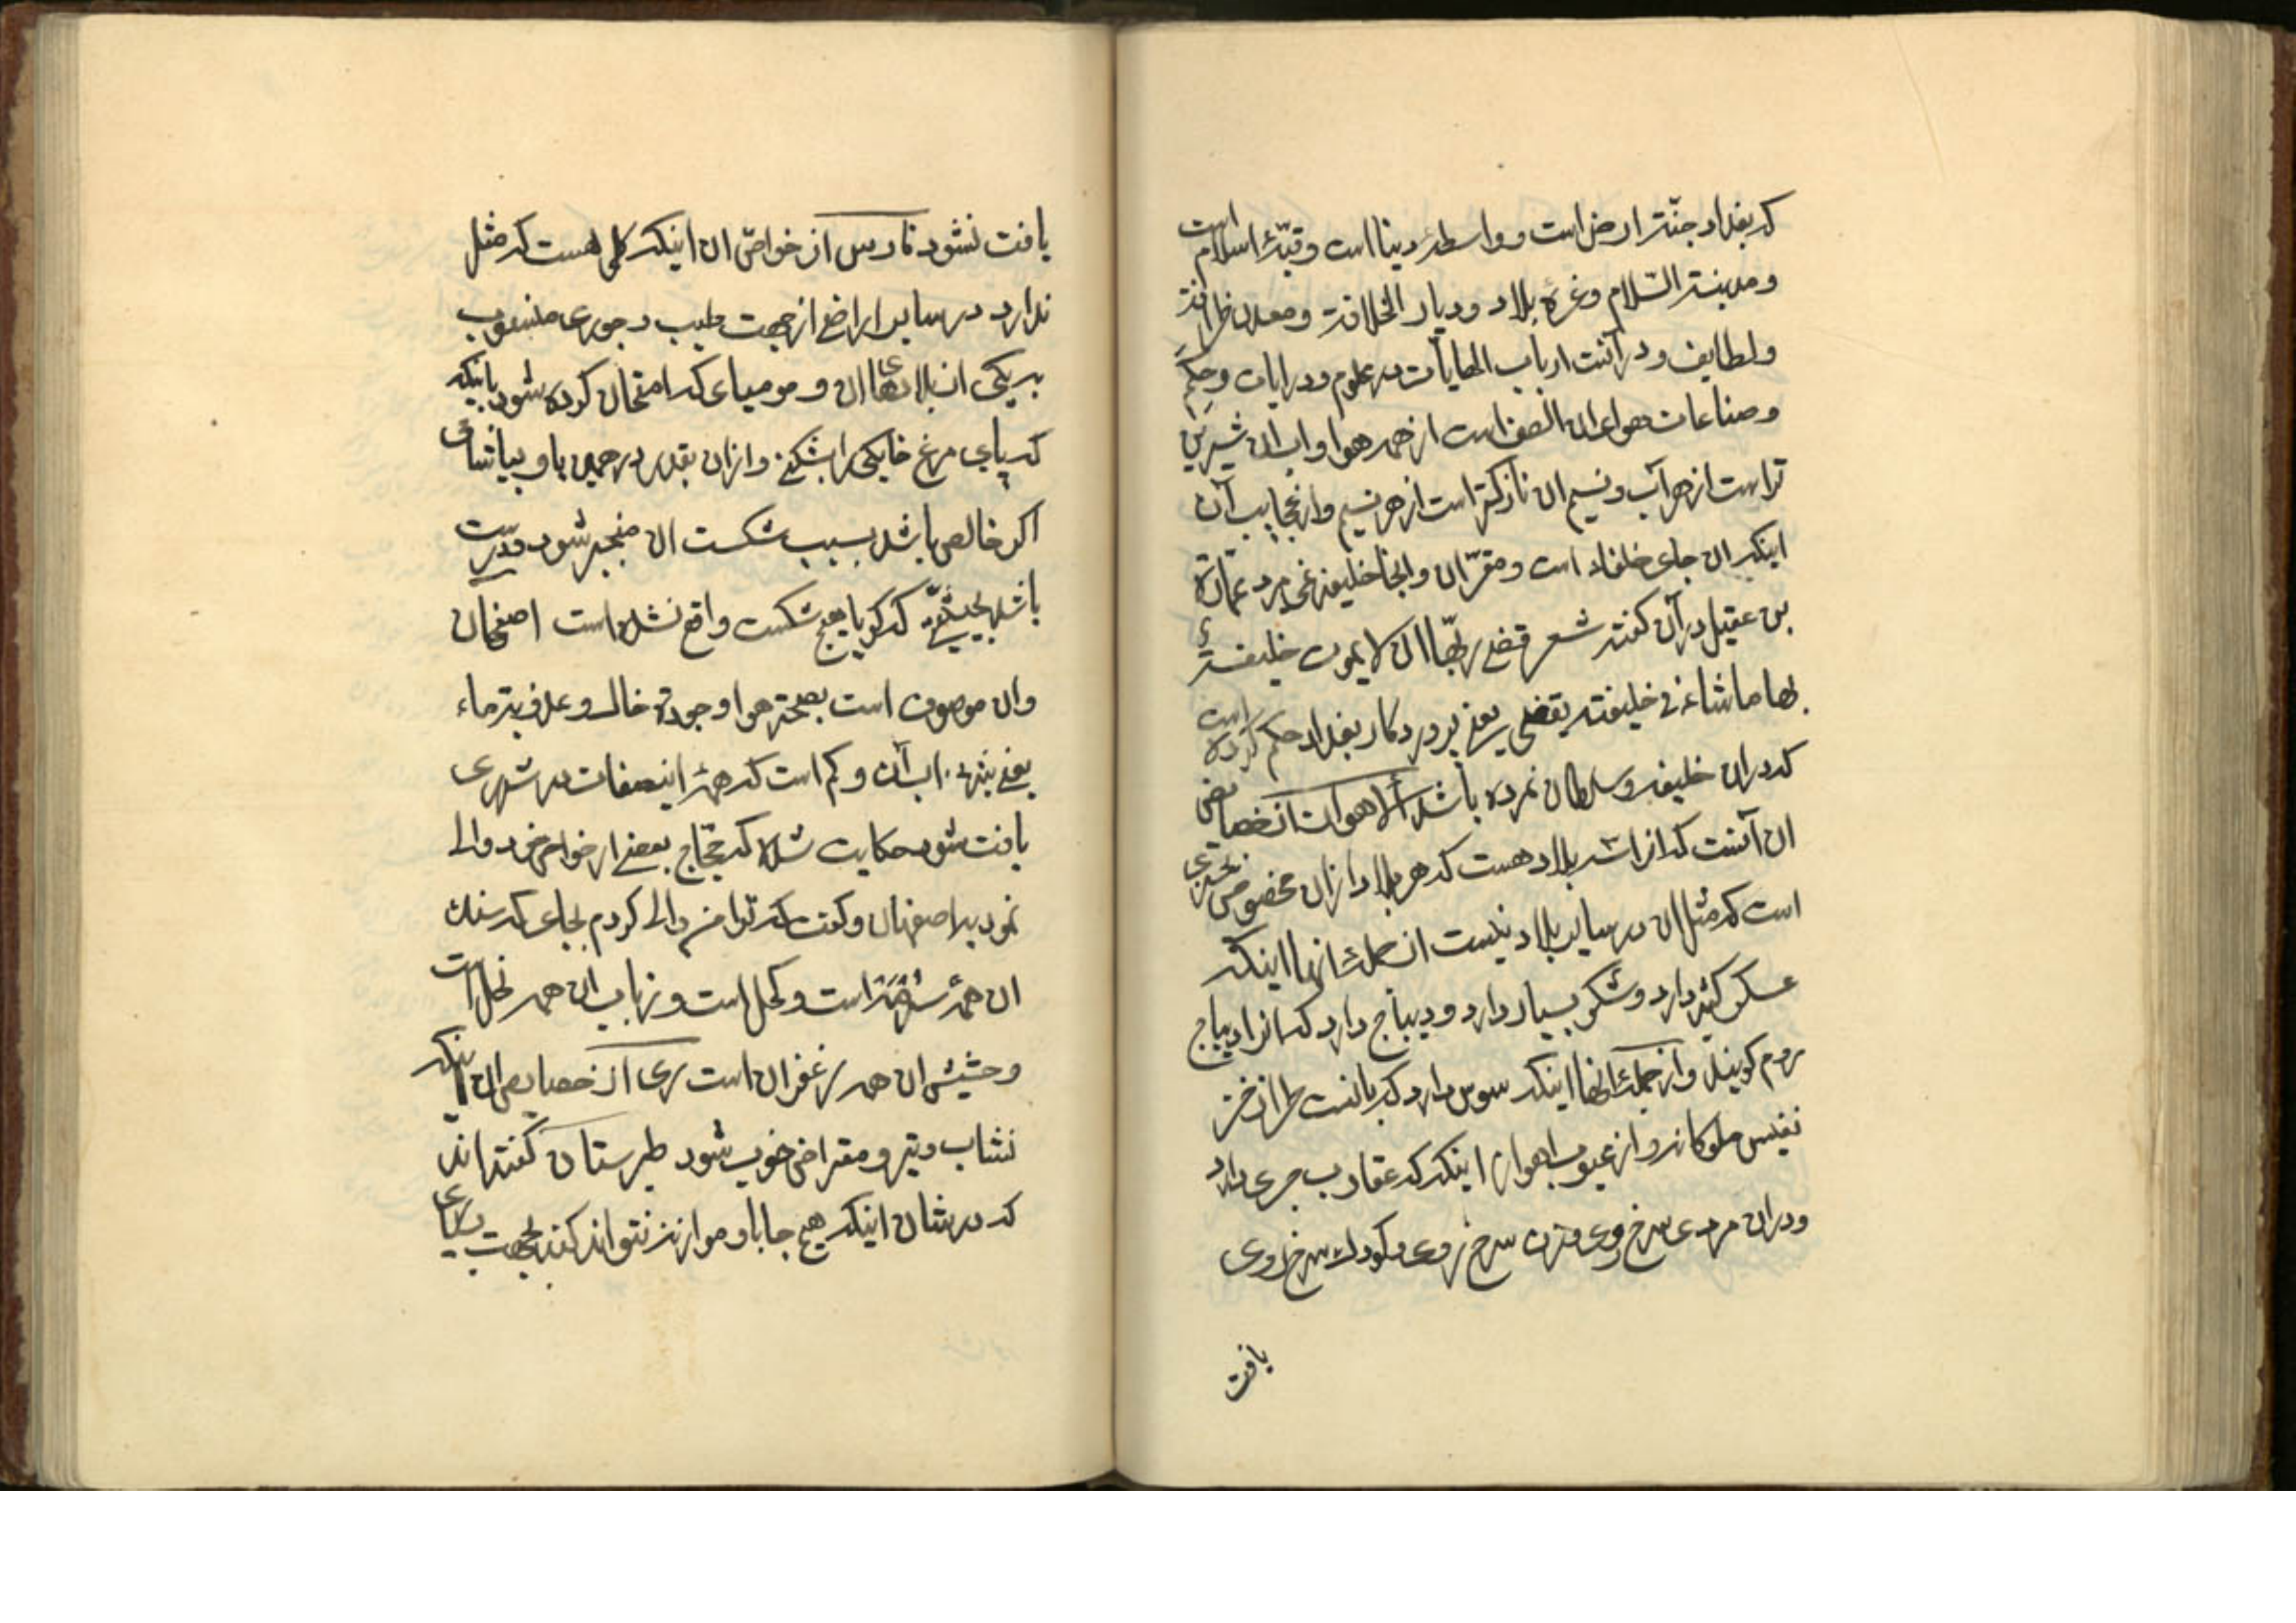 که بغداد جنّة ارض است و واسطهٔ دینا است و قبّهٔ اسلام است
و مدینة السّلام و غرهٔ بلاد و دیار الخلافة و معدن ظرافة
و لطایف و در آنست ارباب الغایات در علوم و درایات و حِکَم
و صناعات هوای ان الصف است از همه هوا و اب ان شیرین
تر است از هر آب و نسیم ان نازکتر است از هر نسیم و از عجایب آن
اینکه ان جای خلفاء است و مقرّ ان و انجا خلیفه نمی مرد عمّارة
بن عقیل در آن کفته شعر قضی ربّها ان لا یموت خلیفة
بها ما شاء فی خلیفته یقضی یعنی پروردکار بغداد حکم کرده است
که دران خلیفه و سلطان نمرده باشد الاهواز از خصایص
ان آنست که از اشد بلاد هست که هر بلاد ازان مخصوص بچیزی
است که مثل ان در سایر بلاد نیست از جملهٔ انها اینکه
عسکر کثیر دارد و شکر بسیار دارد و دیباج دارد که انرا دیباج
روم کویند و از جملهٔ انها اینکه سوس دارد که بافتست طراز خز
نفیس ملوکانه و از عیوب اهواز اینکه که عقارب جری دارد
و دران مردی سرخ روی و زن سرخ روی و کودک سرخ روی
یافت
یافت نشود فارس از خواصّ ان اینکه کلی هست که مثل
ندارد در سایر اراضی از جهت طیب و جوری منسوب
به یکی از بلادهای ان و مومیای که امتحان کرده شود باینکه
که پای مرغ خانکی را بشکنی و ازان بقدر درهمین باو بیاشامی
اکر خالص باشد بسبب شکست ان منجبر شود و درست
باشد بحیثیتی که کویا هیچ شکست واقع نشده است اصفهان
و ان موصوف است بصحة هوا و جودة خاک و عذوبة ماء
یعنی شیرینی اب آن و کم است که همهٔ اینصفات در شهری
یافت شود حکایت شده که حجّاج بعضی از خواص خود والی
نمود به اصفهان و کفت که ترا من والی کردم بجای که سنک
ان همهٔ سرمه است و کحل است و زباب ان همه نحل است
و حشیش ان همه زعفران است ری از خصایص ان اینکه
نشاب و تیر و مقراض خوب شود طبرستان کفته اند
که در شان اینکه هیچ جا باو موازنه نتواند کند بجهت